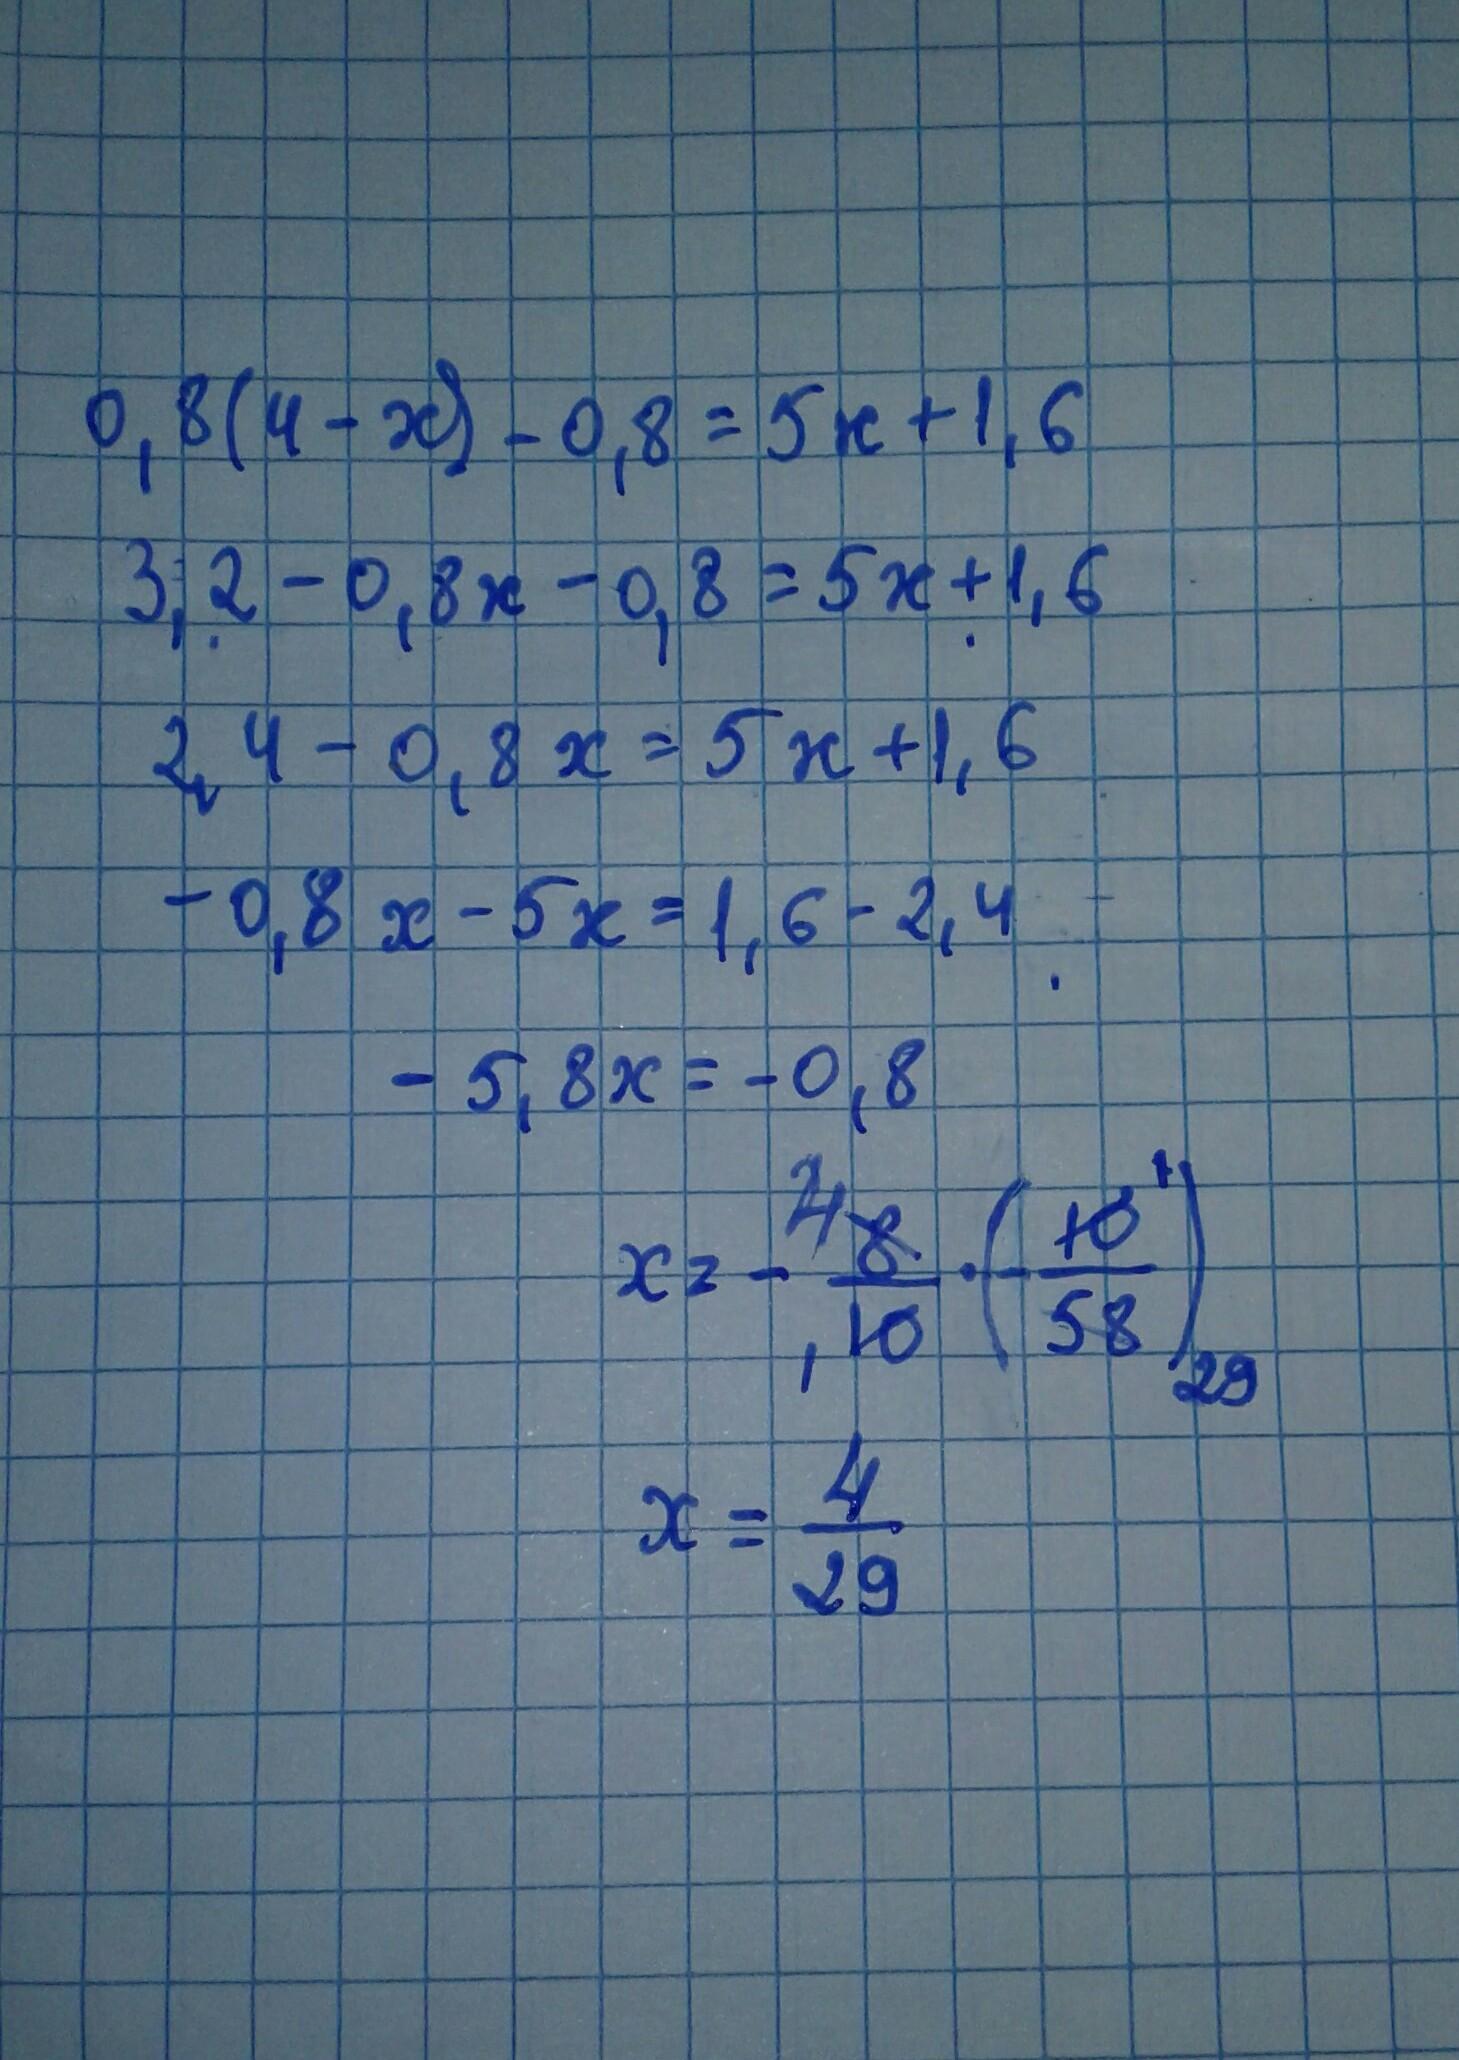 0,8(4-x)-0,8=5x+1,6
3,2-0,8x-0,8=5x+1,6
2,4-0,8x=5x+1,6
-0,8x-5x=1,6-2,4
-5,8x=-0,8
x=-8/10·(-10/58) 4 1 1 29
x=4/29